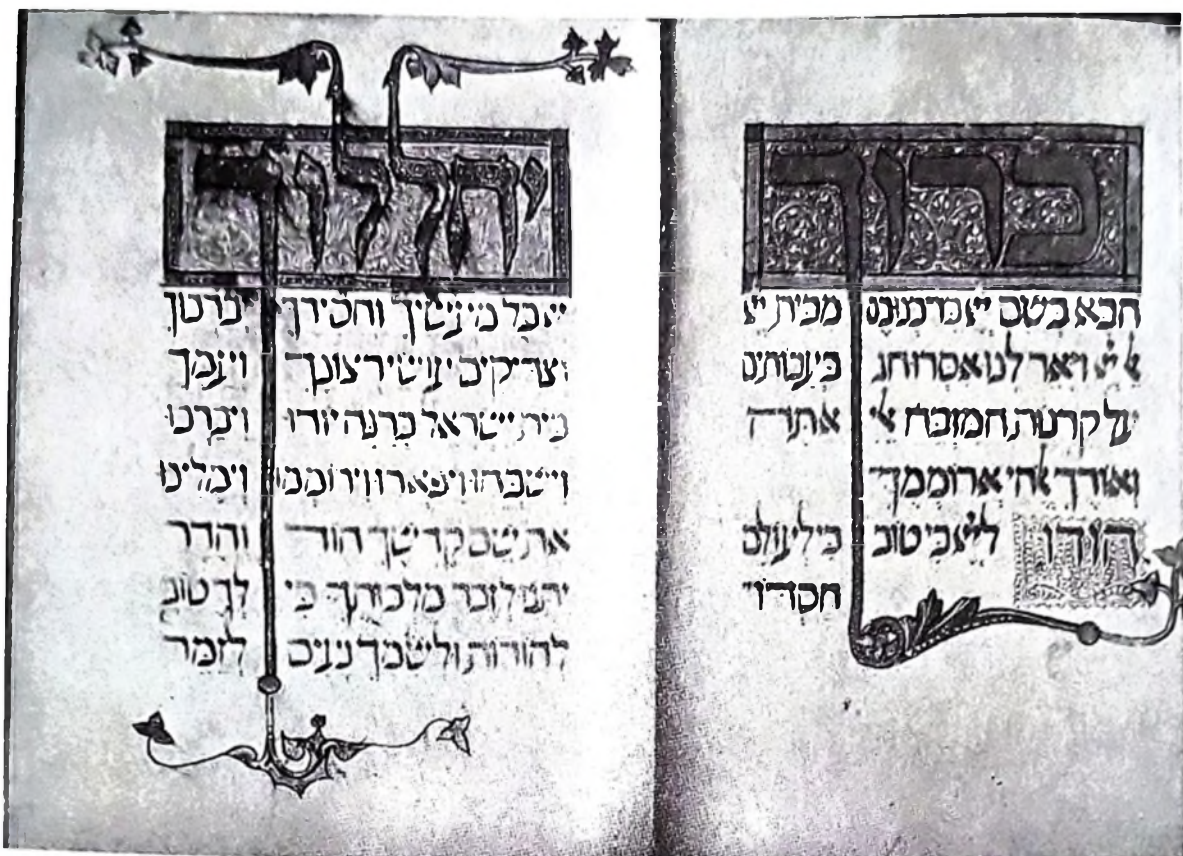 ברוך
הבא בשם ייי ברכנוכם מבית ייי
אל ייי ויאר לנו אסרו חג בעבותים
על קרנות המזבח אלי אתה
ואודך אלהי ארוממך
הודו לייי כי טוב כי לעולם
חסדו
יהללוך
ייי כל מעשיך וחסידך יברכוך
וצדיקים עושי רצונך ועמך
בית ישראל ברנה יודו ויברכו
וישבחו ויפארו וירוממו וימליכו
את שם קדשך הוד והדר
יתנו לזכר מלכותך כי לך טוב
להודות ולשמך נעים לזמר